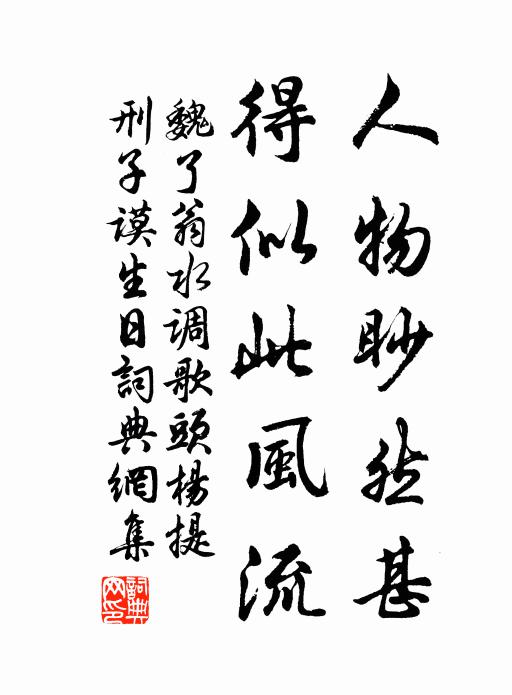 人物眇然甚
得似此風流
魏了翁水调歌頭楊提
刑子谟生日詞典網集
詞典